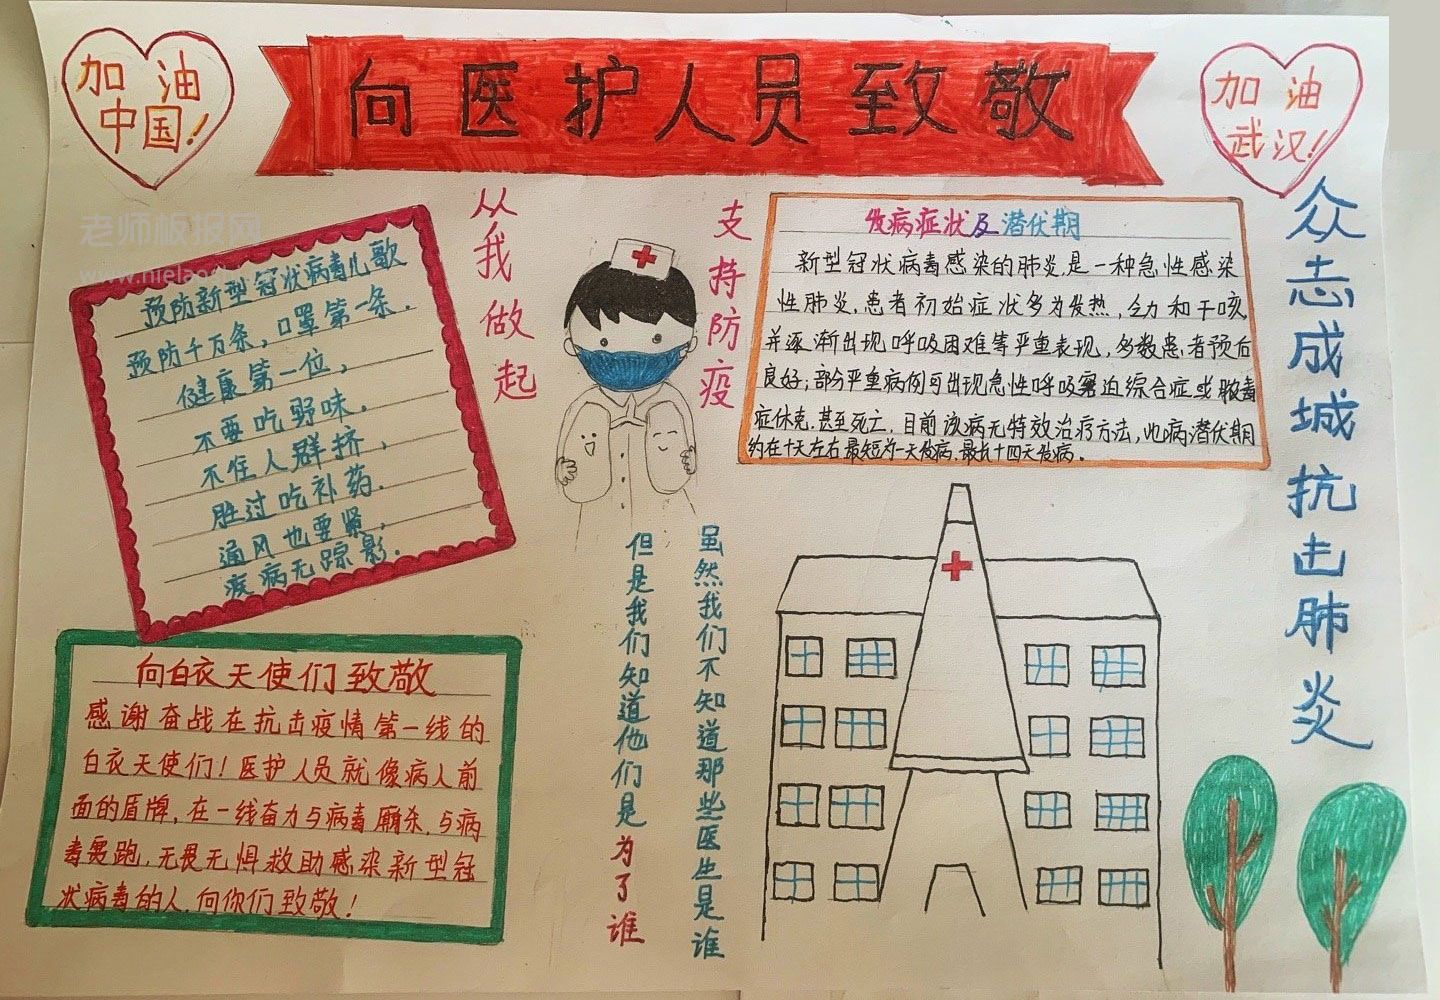 加油
中国!
向医护人员致敬
加油
武汉!
老师板报网
预防新型冠状病毒儿歌
预防千万条,口罩第一条.
健康第一位,
不要吃野味.
不住人群挤,
胜过吃补药.
通风也要紧,
疾病无踪影.
从我做起
支持防疫
发病症状及潜伏期
新型冠状病毒感染的肺炎是一种急性感染
性肺炎.患者初始症状多为发热,乏力和干咳,
并逐渐出现呼吸困难等严重表现,多数患者预后
良好;部分严重病例可出现急性呼吸窘迫综合症或脓毒
症休克,甚至死亡.目前该病无特效治疗方法,此病潜伏期
约在十天左右最短为一天发病,最长十四天发病.
众志成城抗击肺炎
向白衣天使们致敬
感谢奋战在抗击疫情第一线的
白衣天使们!医护人员就像病人前
面的盾牌,在一线奋力与病毒厮杀,与病
毒赛跑,无畏无惧救助感染新型冠
状病毒的人,向你们致敬!
虽然我们不知道那些医生是谁
但是我们知道他们是为了谁